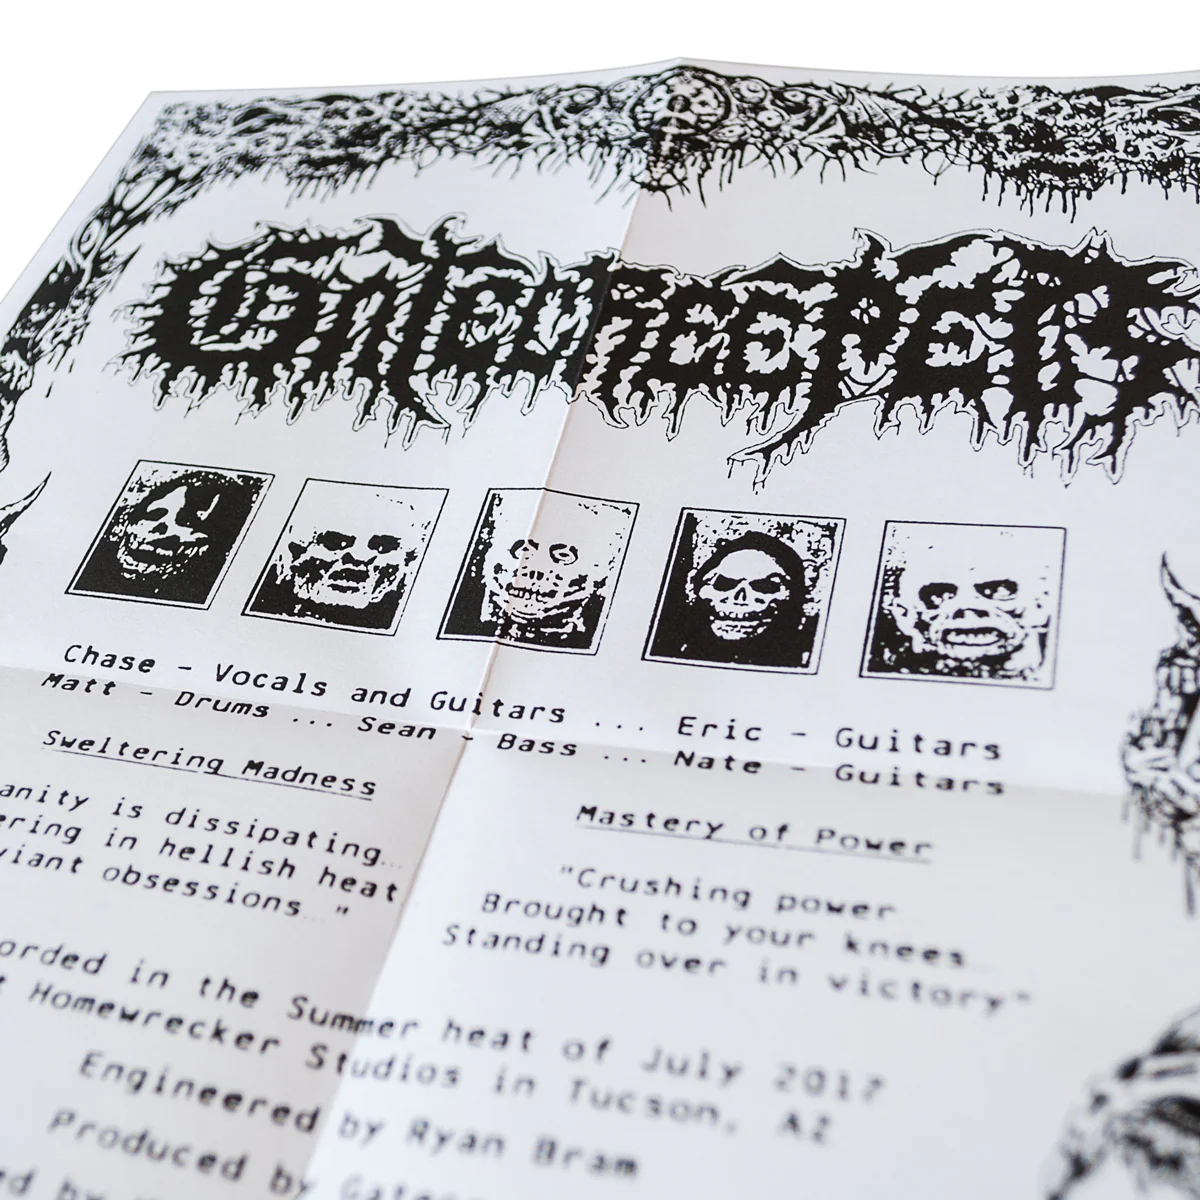 Gatecreeper
Chase - Vocals and Guitars ... Eric - Guitars
Matt - Drums ... Sean - Bass ... Nate - Guitars
Sweltering Madness
anity is dissipating...
ering in hellish heat
viant obsessions..."
Mastery of Power
"Crushing power
Brought to your knees...
Standing over in victory"
orded in the Summer heat of July 2017
t Homewrecker Studios in Tucson, AZ
Engineered by Ryan Bram
Produced by Gatecr
ed by